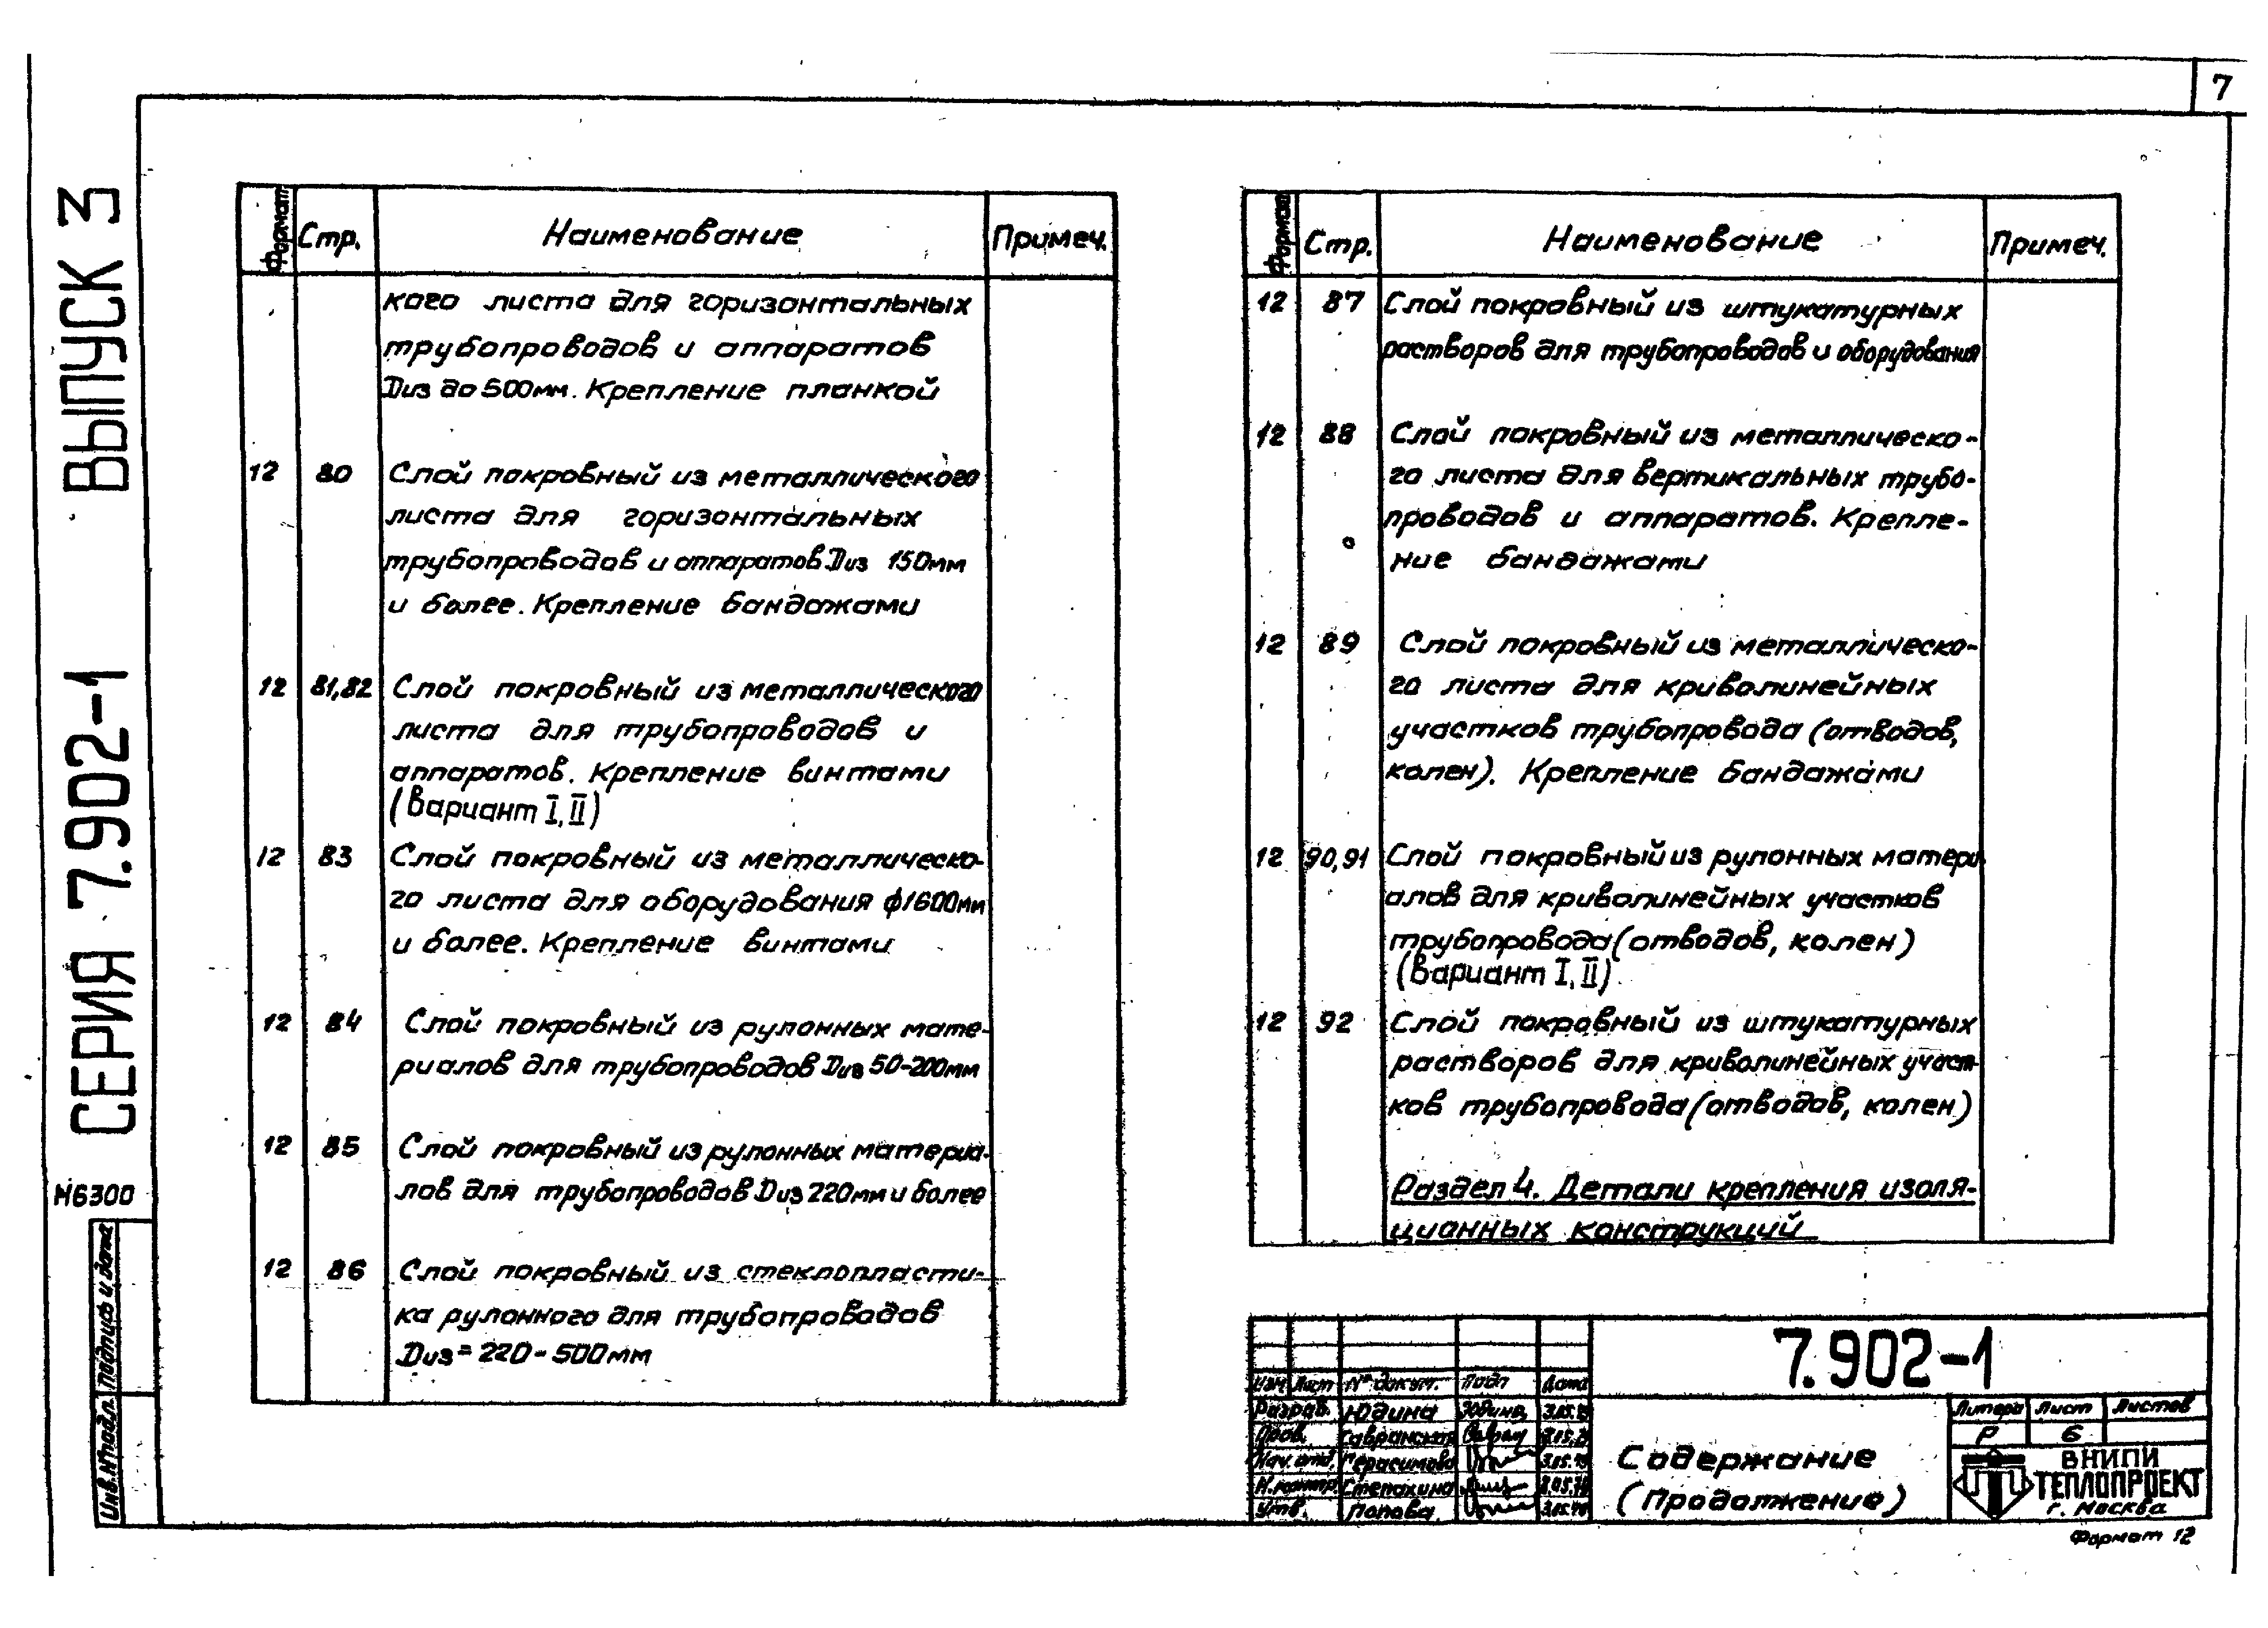 7
СЕРИЯ 7.902-1 ВЫПУСК 3
М6300
Инв.№подл. Подпись и дата
Формат Стр. Наименование Примеч.
кого листа для горизонтальных
трубопроводов и аппаратов
Dиз до 500мм. Крепление планкой
12 80 Слой покровный из металлического
листа для горизонтальных
трубопроводов и аппаратов Dиз 150мм
и более. Крепление бандажами
12 81,82 Слой покровный из металлического
листа для трубопроводов и
аппаратов. Крепление винтами
(Вариант I, II)
12 83 Слой покровный из металлическо-
го листа для оборудования ф1600мм
и более. Крепление винтами
12 84 Слой покровный из рулонных мате-
риалов для трубопроводов Dиз 50-200мм
12 85 Слой покровный из рулонных материа-
лов для трубопроводов Dиз 220мм и более
12 86 Слой покровный из стеклопласти-
ка рулонного для трубопроводов
Dиз = 220 - 500мм
Формат Стр. Наименование Примеч.
12 87 Слой покровный из штукатурных
растворов для трубопроводов и оборудования
12 88 Слой покровный из металлическо-
го листа для вертикальных трубо-
проводов и аппаратов. Крепле-
ние бандажами
12 89 Слой покровный из металлическо-
го листа для криволинейных
участков трубопровода (отводов,
колен). Крепление бандажами
12 90,91 Слой покровный из рулонных матери
алов для криволинейных участков
трубопровода (отводов, колен)
(Вариант I, II)
12 92 Слой покровный из штукатурных
растворов для криволинейных участ-
ков трубопровода (отводов, колен)
Раздел 4. Детали крепления изоля-
ционных конструкций
7.902-1
Изм Лист № докум. Подп Дата
Разраб. Юдина
Пров. Гавранская
Нач. отд. Герасимова
Н. контр. Степахина
Утв. Попова
Содержание
(Продолжение)
Литера Лист Листов
Р 6
ВНИПИ
ТЕПЛОПРОЕКТ
г. Москва
Формат 12